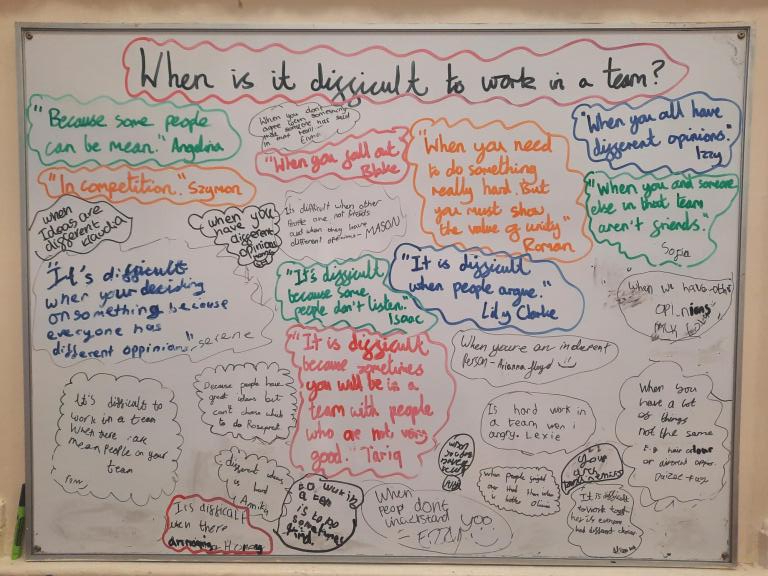 When is it difficult to work in a team?
"Because some people
can be mean." Angelina
When you don't
agree with something
someone has said
in that team
"When you fall out"
Blake
"When you need
to do something
really hard. But
you must show
the value of unity"
Roman
"When you all have
different opinions."
Izzy
"In competition." Szymon
"When you and someone
else in that team
aren't friends."
Sofia
when
Ideas are
different
Klaudia
when you
have
different
opinions
Its difficult when other
are not friends
and when they have
different opinions - MASON
"It's difficult
when your deciding
on something because
everyone has
different oppinions" serene
"It's difficult
because some
people don't listen."
Isaac
"It is difficult
when people argue."
Lily Clarke
when we have other
OPI.nions
"It is difficult
because sometimes
you will be in a
team with people
who are not very
good." Tariq
When you're an indierent
Person - Arianna floyd
It's difficult to
work in a team
When there are
mean People on your
team
Because people have
great ideas but
can't chose which
to do
Is hard work in
a team wen i
angry. Lexie
When you
have a lot
of things
not the same
E.g hair colour
or different
different ideas
is hard
Annika
Its difficalt
wen there
annoying
to work in
a
is
sometimes
When
peopl dont
understand you
when people
It is difficult
to work
different